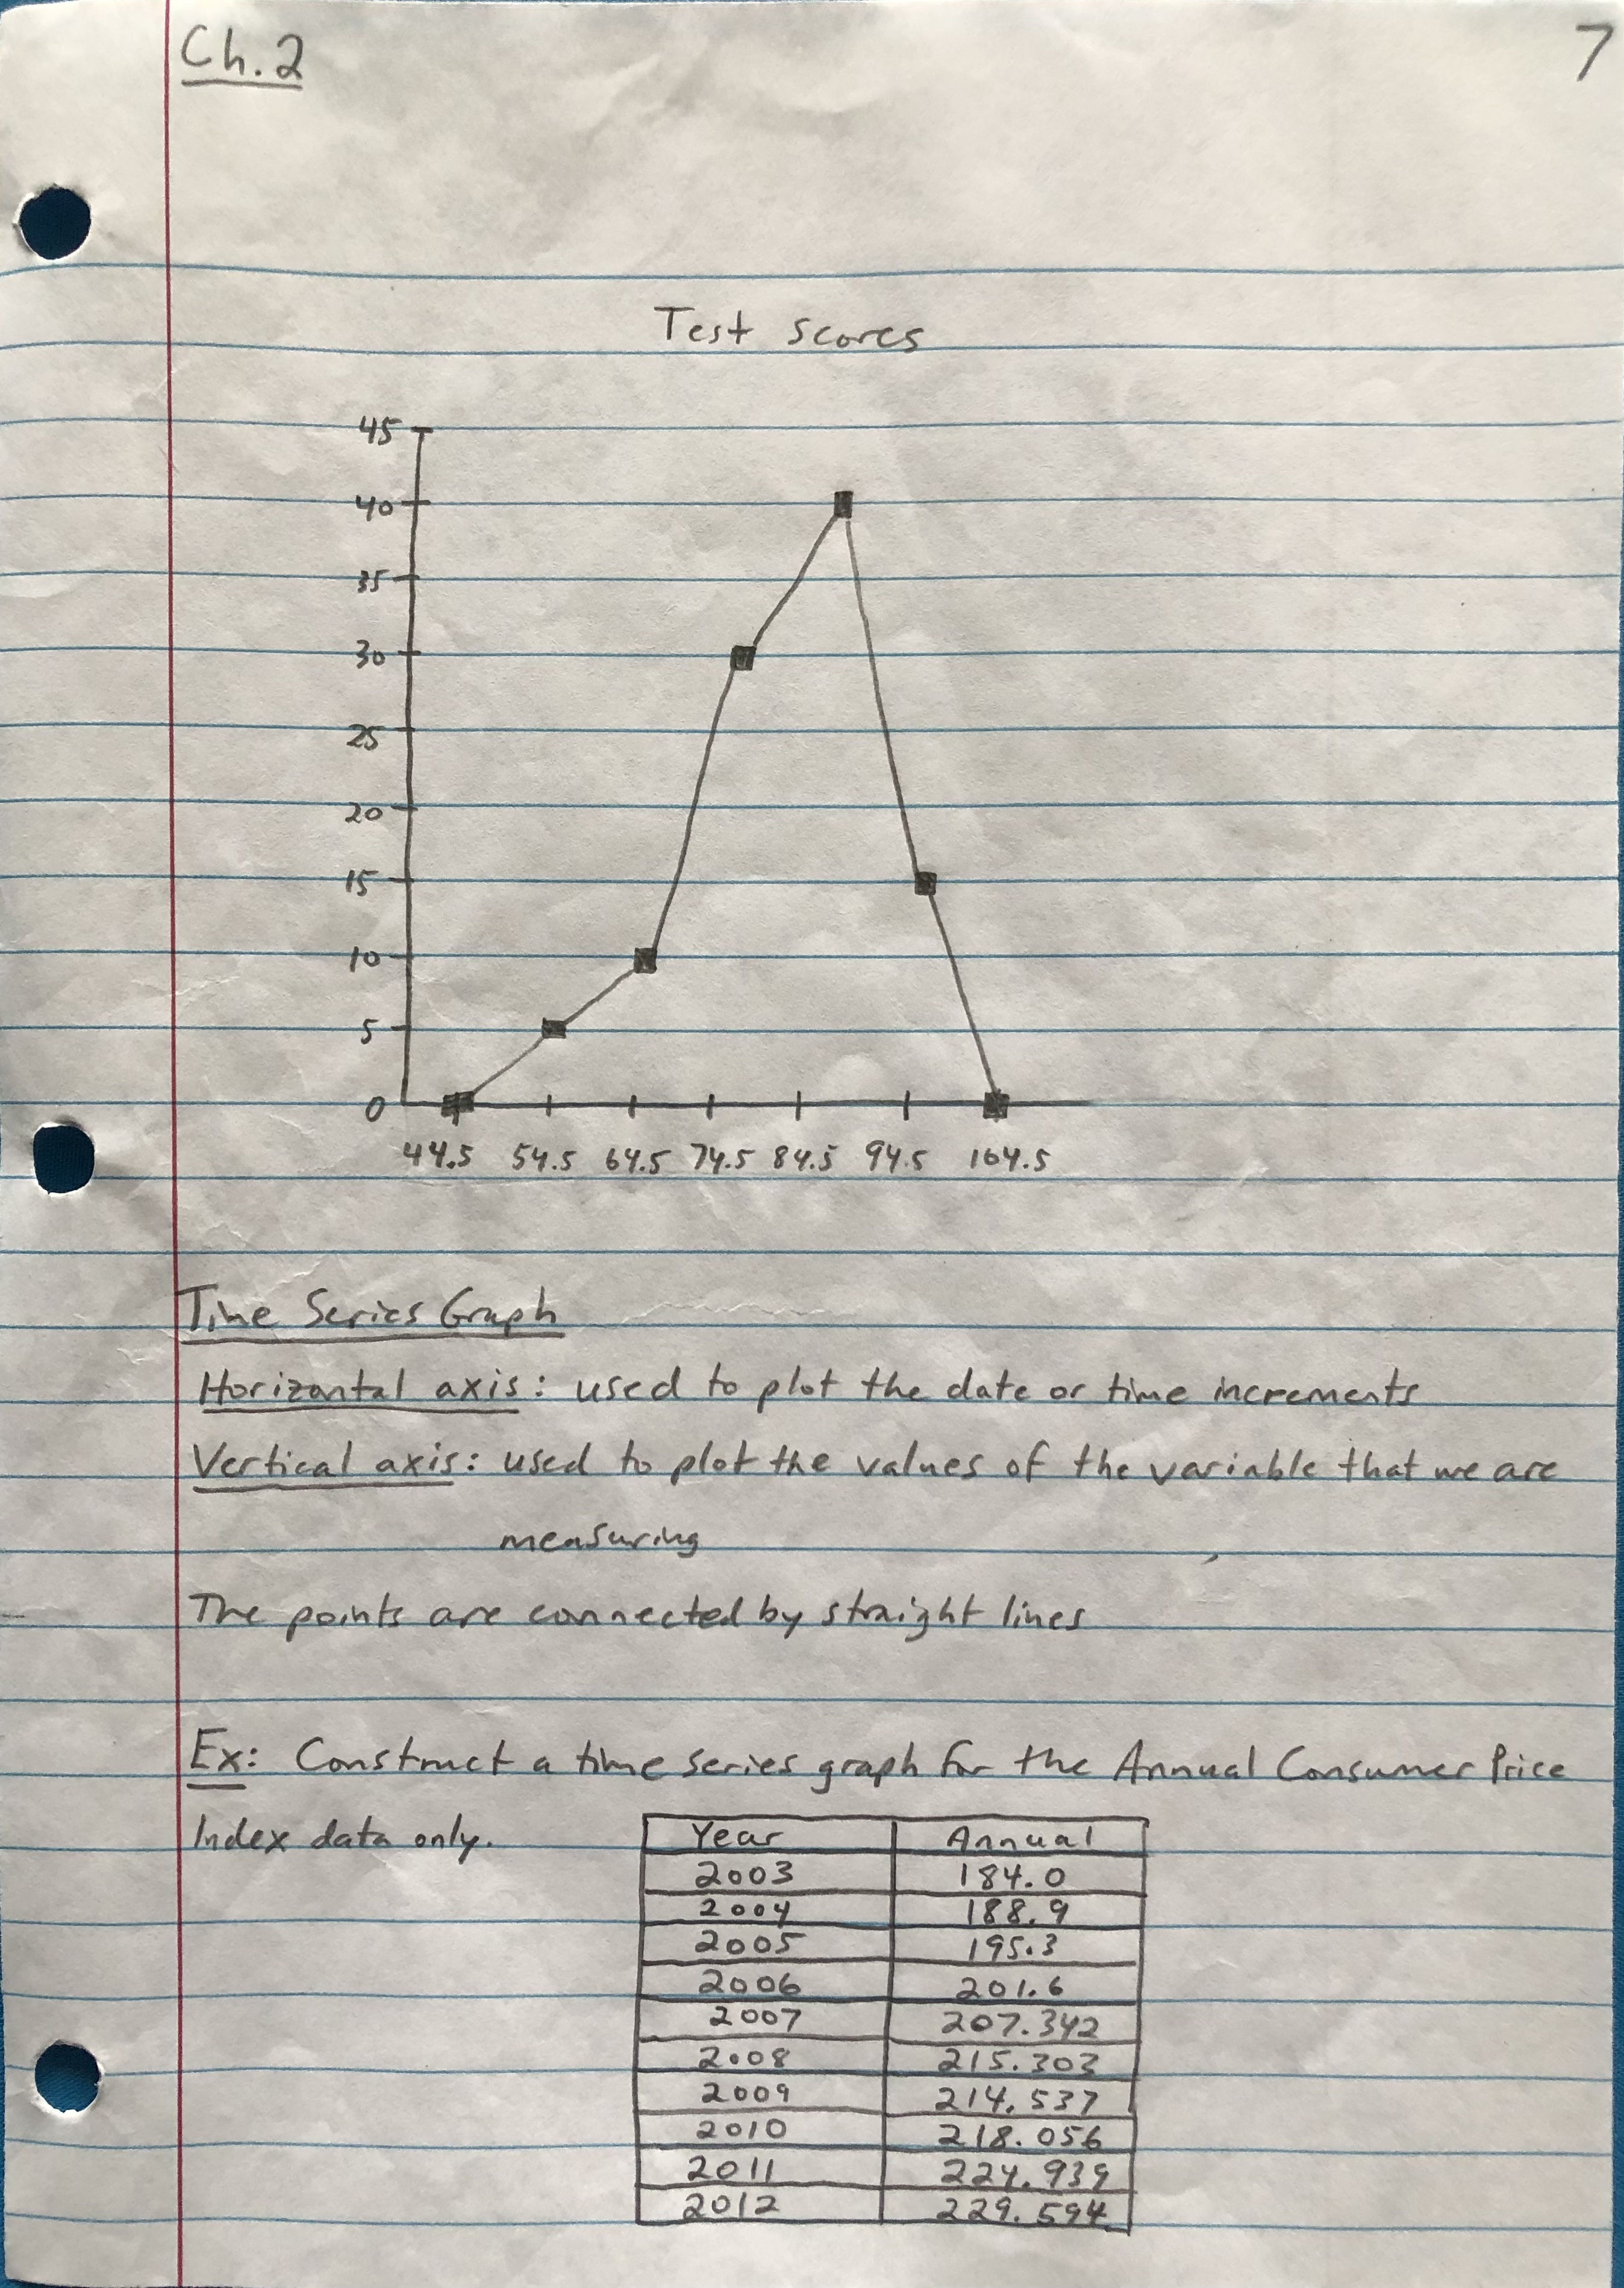 Ch.2
7
Test scores
45
40
35
30
25
20
15
10
5
0
44.5 54.5 64.5 74.5 84.5 94.5 104.5
Time Series Graph
Horizontal axis: used to plot the date or time increments
Vertical axis: used to plot the values of the variable that we are
measuring
The points are connected by straight lines
Ex: Construct a time series graph for the Annual Consumer Price
Index data only.
Year Annual
2003 184.0
2004 188.9
2005 195.3
2006 201.6
2007 207.342
2008 215.303
2009 214.537
2010 218.056
2011 224.939
2012 229.594